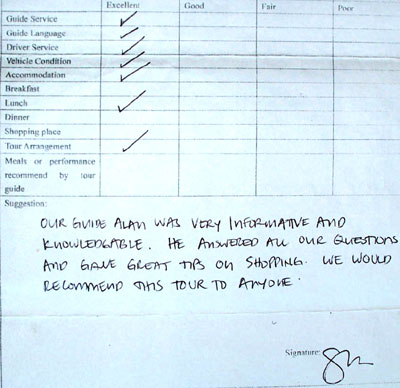 Excellent Good Fair Poor
Guide Service
Guide Language
Driver Service
Vehicle Condition
Accommodation
Breakfast
Lunch
Dinner
Shopping place
Tour Arrangement
Meals or performance
recommend by tour
guide
Suggestion:
OUR GUIDE ALAN WAS VERY INFORMATIVE AND
KNOWLEDGABLE. HE ANSWERED ALL OUR QUESTIONS
AND GAVE GREAT TIPS ON SHOPPING. WE WOULD
RECOMMEND THIS TOUR TO ANYONE.
Signature: